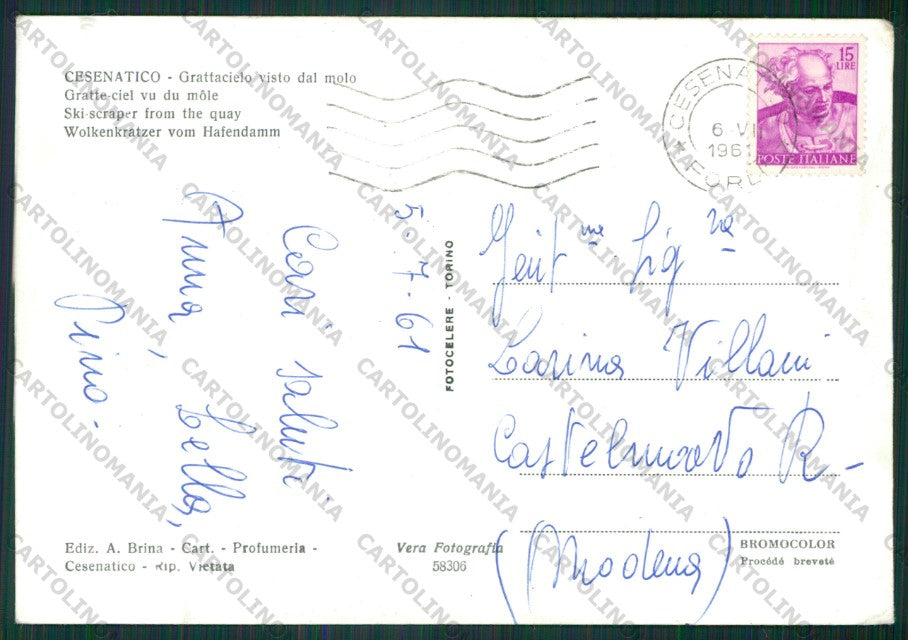 CESENATICO - Grattacielo visto dal molo
Gratte-ciel vu du môle
Ski-scraper from the quay
Wolkenkratzer vom Hafendamm
CESENATICO
6 VII
1961
FORLI
15
LIRE
POSTE ITALIANE
5-7-61
Cari saluti
Anna, Lella,
Pino-
FOTOCELERE - TORINO
Gent me Sig na
Larina Villani
Castelnuovo R-
(Modena)
Ediz. A. Brina - Cart. - Profumeria -
Cesenatico - Rip. Vietata
Vera Fotografia
58306
BROMOCOLOR
Procédé breveté
CARTOLINOMANIA